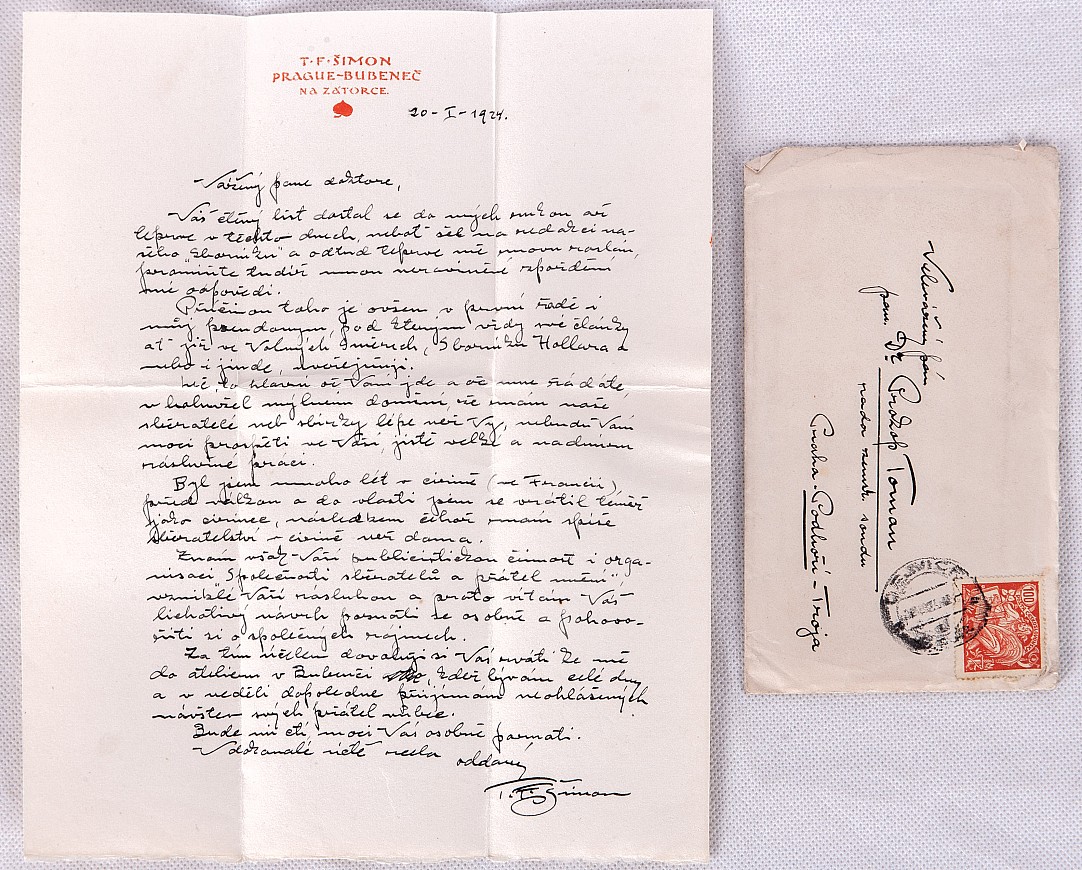 T·F·ŠIMON
PRAGUE-BUBENEČ
NA ZÁTORCE.
20-I-1924.
Vážený pane doktore,
Váš ctěný list dostal se do mých rukou až
teprve v těchto dnech, neboť šel na redakci na-
šeho „Sborníku" a odtud teprve mě znovu zaslán,
promiňte tudíž mnou nezaviněné zpoždění
mé odpovědi.
Příčinou toho je ovšem, v první řadě i
můj pseudonym, pod kterým vždy své články
ať již ve Volných Směrech, Sborníku Hollara a
nebo i jinde, uveřejňuji.
Leč, to hlavní oč Vám jde a oč mne žádáte,
v bohužel mylném domnění, že znám naše
sběratele neb sbírky lépe než Vy, nebudu Vám
moci prospěti ve Vaší, jistě velké a nadmíru
záslužné práci.
Byl jsem mnoho lét v cizině (ve Francii)
před válkou a do vlasti jsem se vrátil téměř
jako cizinec, následkem čehož znám spíše
sběratelství v cizině než doma.
Znám však Vaší publicistickou činnost i orga-
nisaci „Společnosti sběratelů a přátel umění"
vzniklé Vaší zásluhou a proto vítám Váš
lichotivý návrh poznati se osobně a pohovo-
řiti si o společných zájmech.
Za tím účelem dovoluji si Vás zváti ke mě
do atelieru v Bubenči, kdež bývám celé dny
a v neděli dopoledne přijímám neohlášených
návštev svých přátel
Bude mi ctí, moci Vás osobně poznati.
V dokonalé úctě zcela oddaný
T.F. Šimon
Velevážený pán
pan. Dr. Prokop Toman
rada zemsk. soudu
Praha-Podhoří-Troja
100